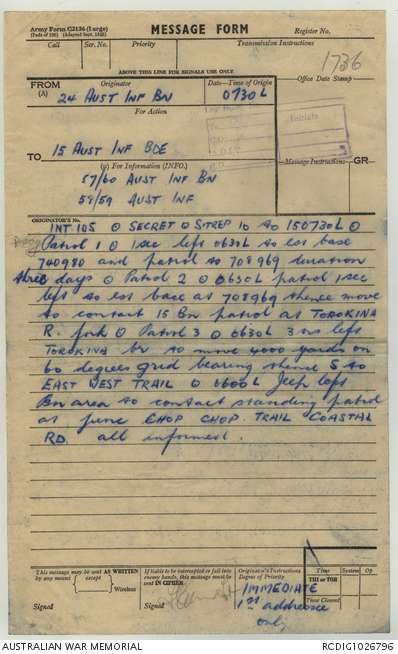 Army Form C2136 (Large)
(Pads of 100) (Adapted Sept. 1942)
MESSAGE FORM
Register No.
Call
Ser. No.
Priority
Transmission Instructions
1736
ABOVE THIS LINE FOR SIGNALS USE ONLY
Office Date Stamp
FROM
(A)
Originator
Date—Time of Origin
24 AUST INF BN
0730L
For Action
Initials
TO
15 AUST INF BDE
(W) For Information (INFO.)
Message Instructions
GR
57/60 AUST INF BN
58/59 AUST INF
ORIGINATOR'S No.
INT 105 ⊙ SECRET ⊙ SITREP 10 to 150730L ⊙
Patrol 1 ⊙ 1 sec left 0630L to est base
740980 and patrol to 708969 duration
three days ⊙ Patrol 2 ⊙ 0630L patrol 1 sec
left to est base at 708969 thence move
to contact 15 Bn patrol at TOROKINA
R. fork ⊙ Patrol 3 ⊙ 0630L 3 ors left
TOROKINA br to move 4000 yards on
60 degrees grid bearing thence S to
EAST WEST TRAIL ⊙ 0600L Jeep left
Bn area to contact standing patrol
at junc CHOP CHOP TRAIL COASTAL
RD. all informed.
This message may be sent AS WRITTEN
by any means (except) Wireless
Signed
If liable to be intercepted or fall into
enemy hands, this message must be
sent IN CIPHER
Signed
Originator's Instructions
Degree of Priority
IMMEDIATE
1st addressee
only
Time
System
Op
THI or TOR
Time Cleared
AUSTRALIAN WAR MEMORIAL
RCDIG1026796